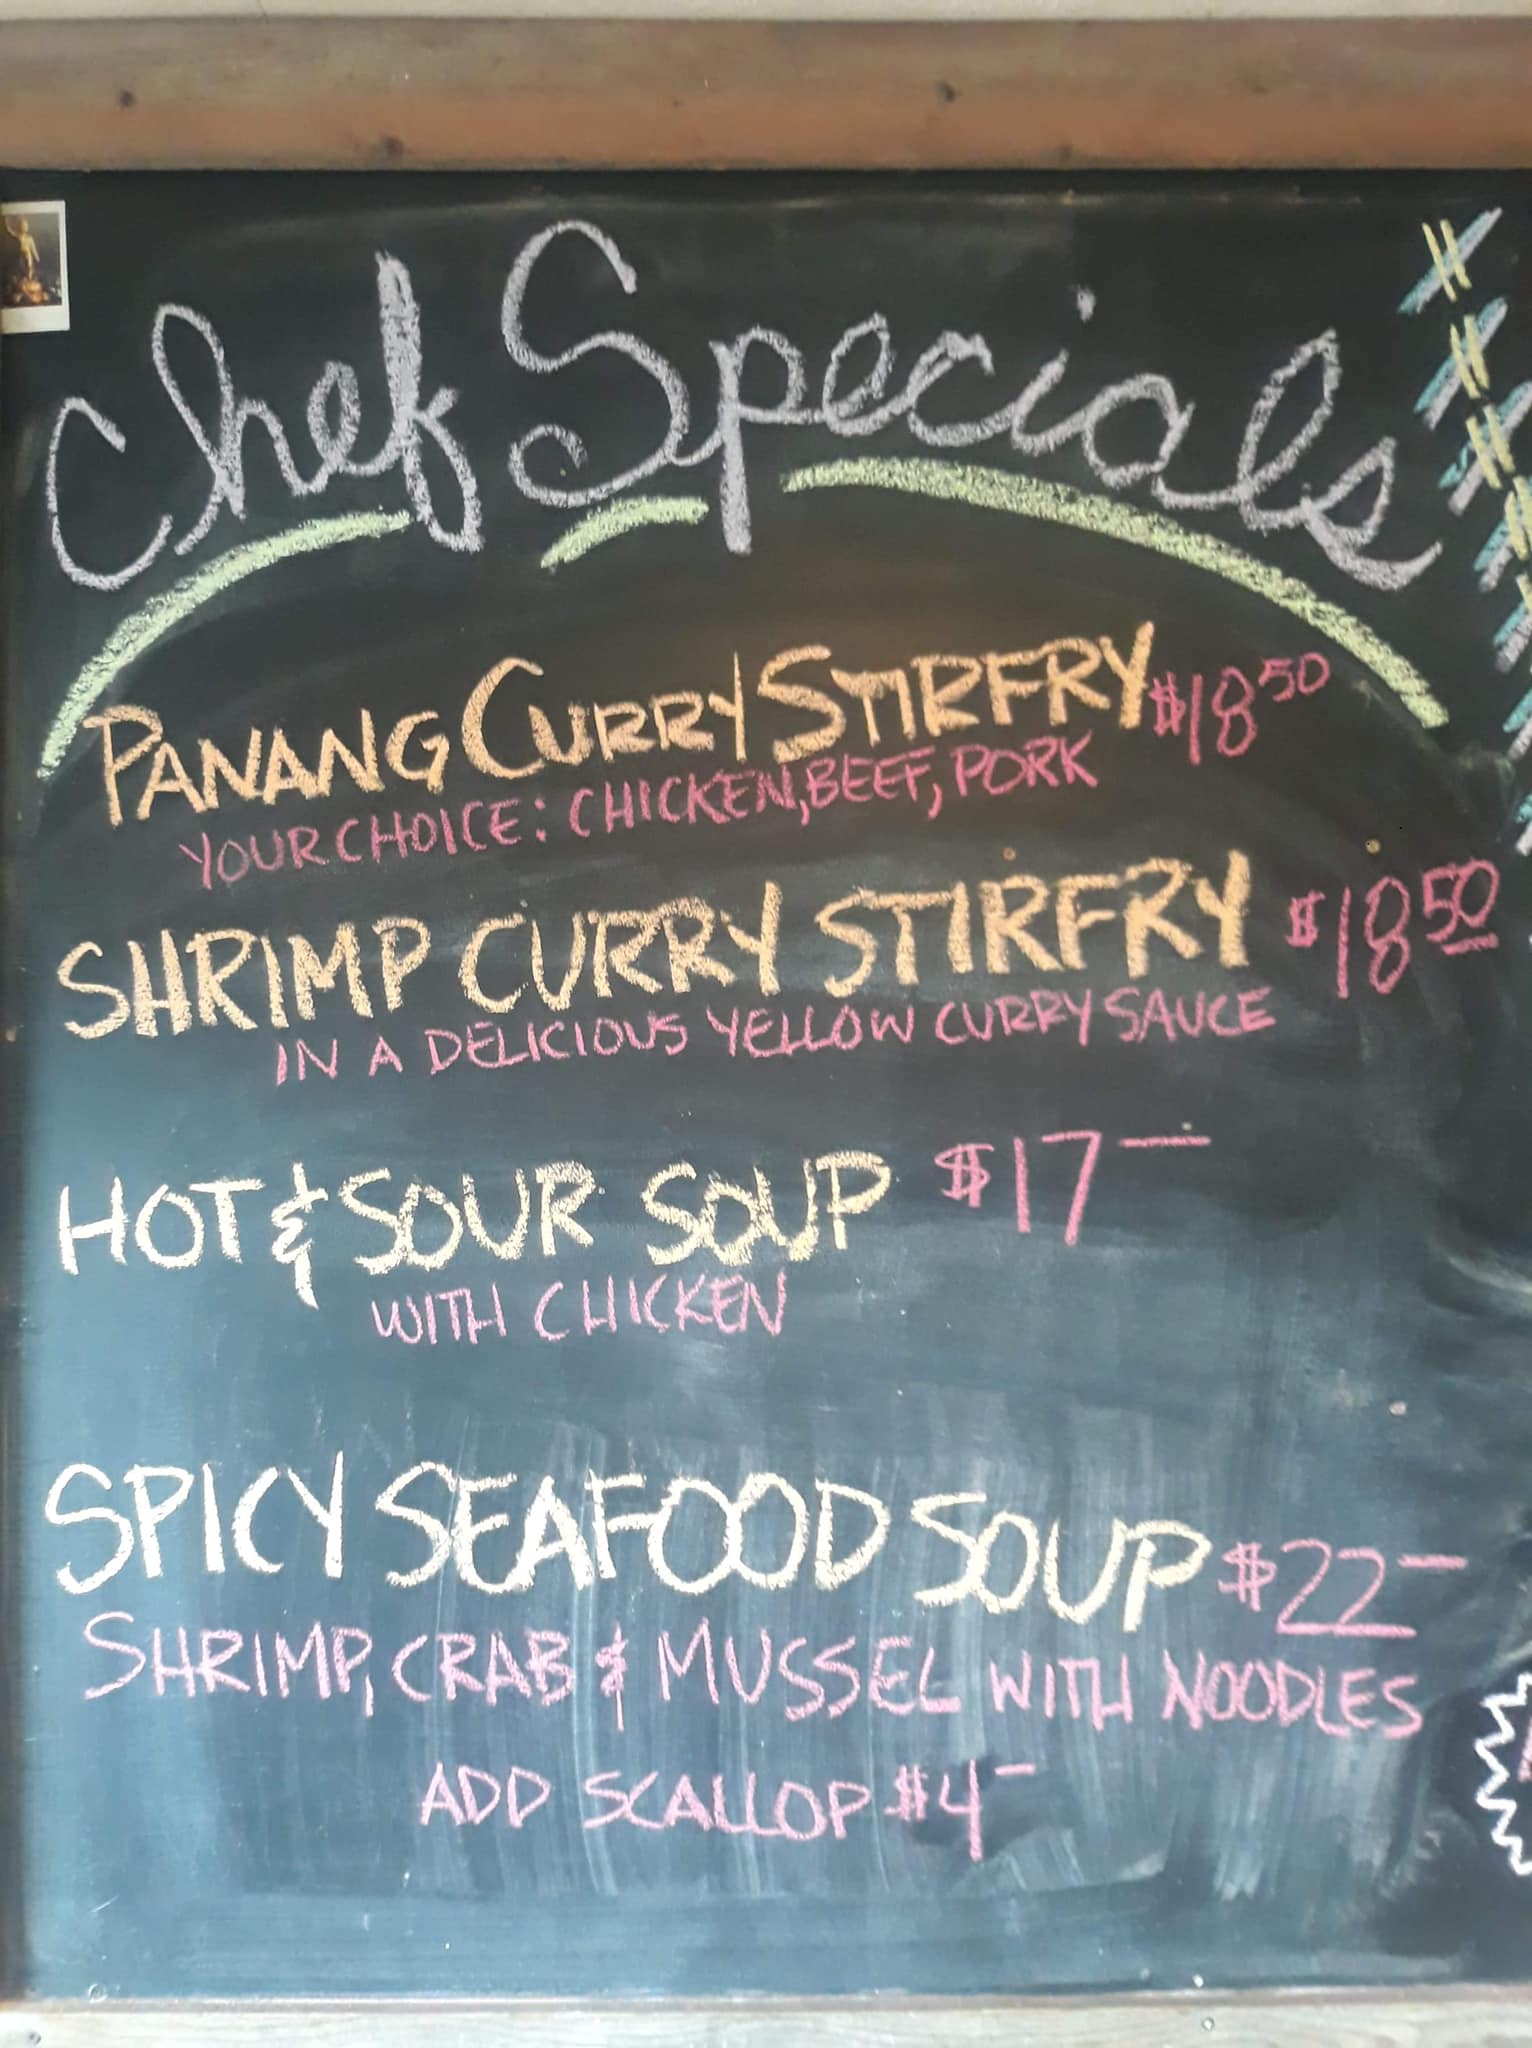 Chef Specials
PANANG CURRY STIRFRY $18 50
YOUR CHOICE: CHICKEN, BEEF, PORK
SHRIMP CURRY STIRFRY $18 50
IN A DELICIOUS YELLOW CURRY SAUCE
HOT & SOUR SOUP $17 —
WITH CHICKEN
SPICY SEAFOOD SOUP $22 —
SHRIMP, CRAB & MUSSEL WITH NOODLES
ADD SCALLOP $4 —